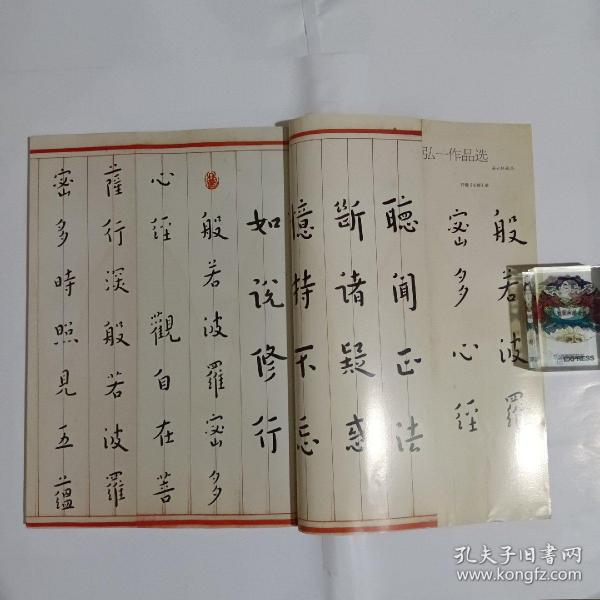 弘一作品选
般若波羅
蜜多心經
聽聞正法
斷諸疑惑
憶持不忘
如说修行
般若波羅蜜多
心經 觀自在菩
薩行深般若波羅
蜜多時照見五蘊
EXPRESS
孔夫子旧书网
www.kongfz.com